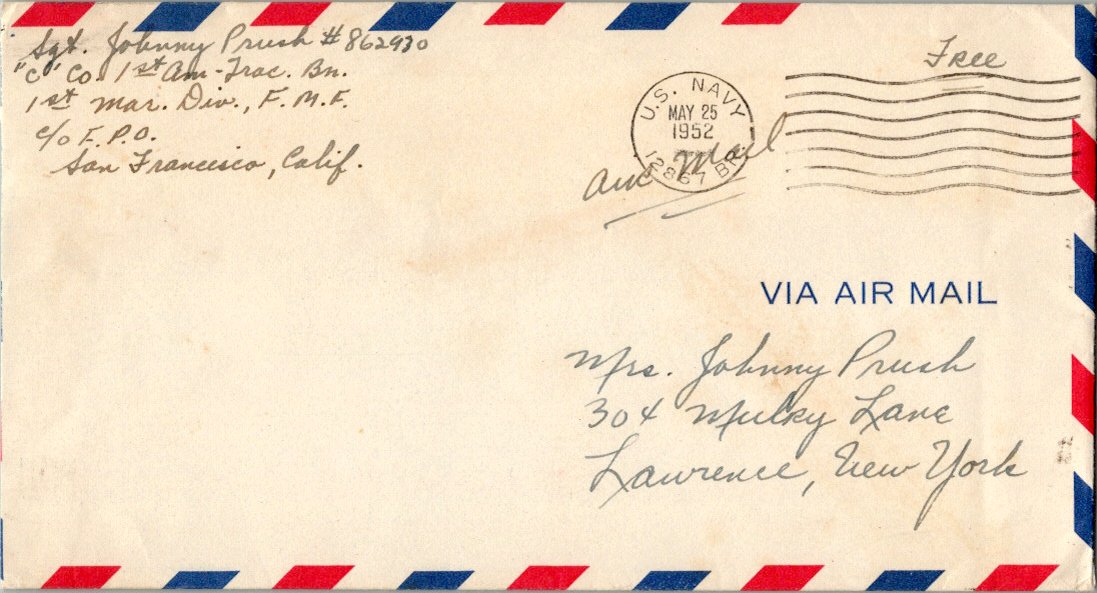 Sgt. Johnny Prush # 862930
"C" Co. 1st Am-Trac. Bn.
1st Mar. Div., F.M.F.
c/o F.P.O.
San Francisco, Calif.
Free
U.S. NAVY
MAY 25
1952
12867 BR.
Air Mail
VIA AIR MAIL
Mrs. Johnny Prush
304 Mulky Lane
Lawrence, New York